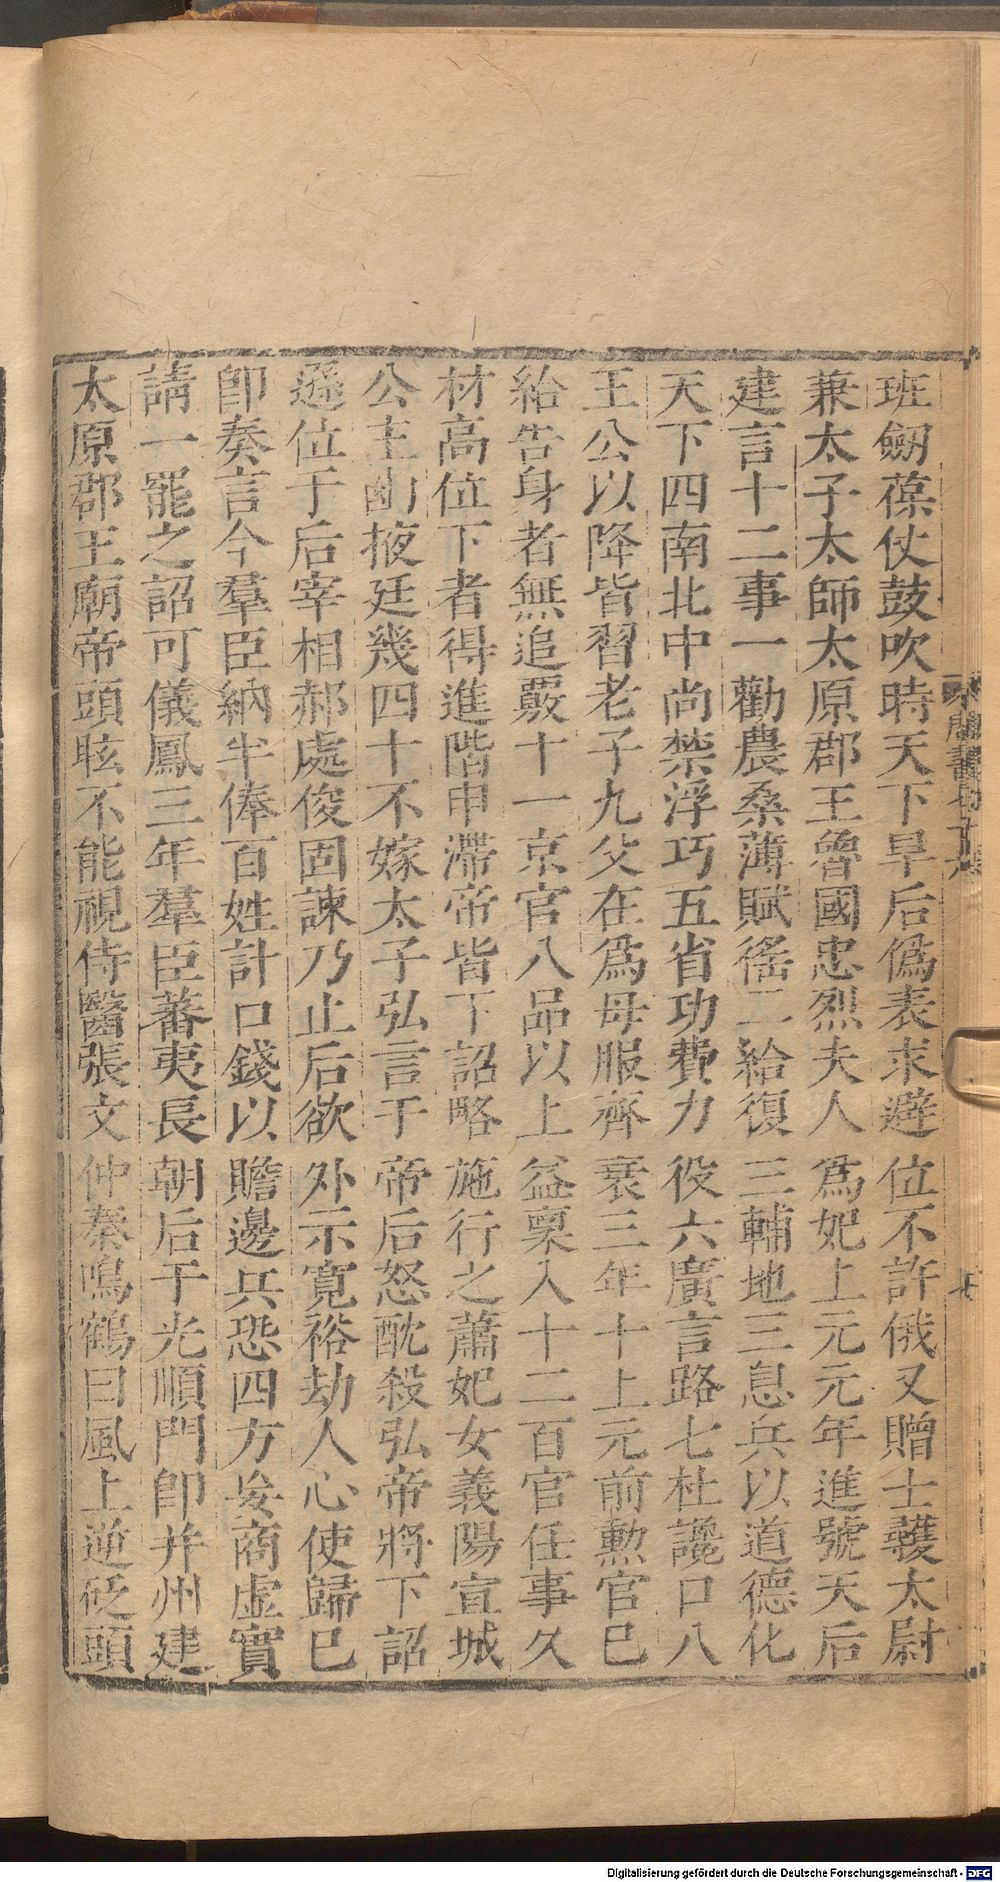 班劒葆仗鼓吹時天下旱后僞表求避位不許俄又贈士彠太尉
兼太子太師太原郡王魯國忠烈夫人爲妃上元元年進號天后
建言十二事一勸農桑薄賦徭二給復三輔地三息兵以道德化
天下四南北中尚禁浮巧五省功費力役六廣言路七杜讒口八
王公以降皆習老子九父在爲母服齊衰三年十上元前勲官巳
給告身者無追覈十一京官八品以上益稟入十二百官任事久
材高位下者得進階申滯帝皆下詔略施行之蕭妃女義陽宣城
公主幽掖廷幾四十不嫁太子弘言于帝后怒酖殺弘帝將下詔
遜位于后宰相郝處俊固諫乃止后欲外示寛裕劫人心使歸已
卽奏言今羣臣納半俸百姓計口錢以贍邊兵恐四方妄商虛實
請一罷之詔可儀鳳三年羣臣蕃夷長朝后于光順門卽并州建
太原郡王廟帝頭眩不能視侍醫張文仲秦鳴鶴曰風上逆砭頭
唐書七十六
七
Digitalisierung gefördert durch die Deutsche Forschungsgemeinschaft - DFG